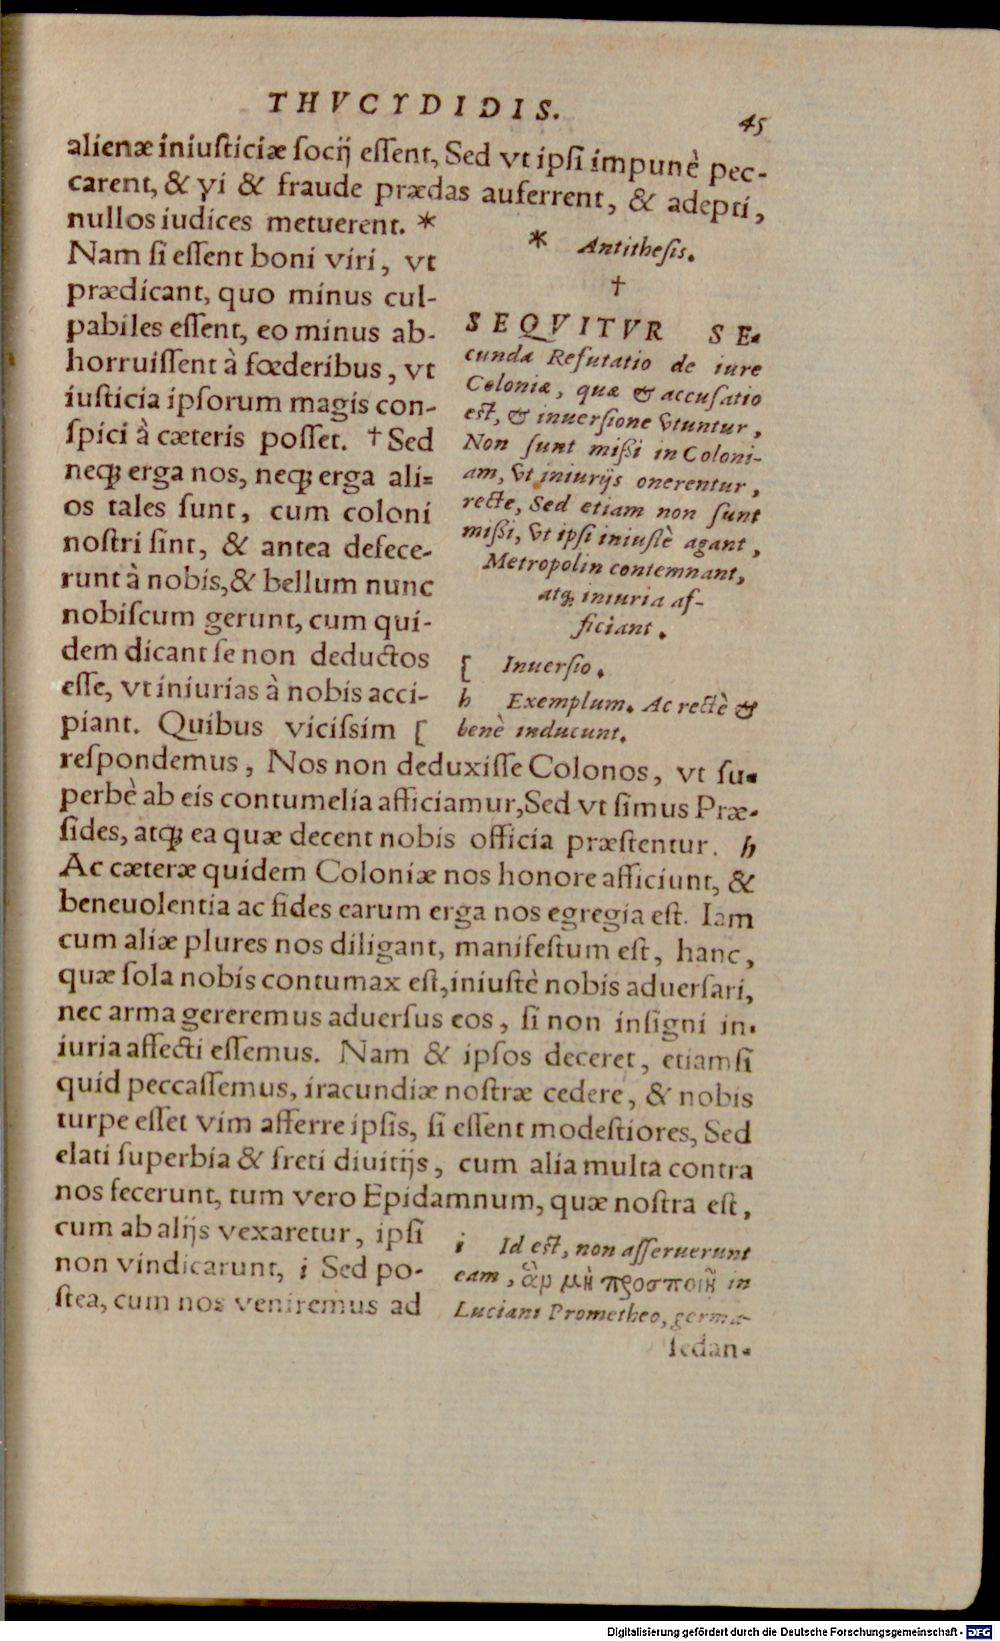 THVCYDIDIS.
45
alienæ iniusticiæ socij essent, Sed vt ipsi impunè pec-
carent, & vi & fraude prædas auferrent, & adepti,
nullos iudices metuerent. *
Nam si essent boni viri, vt
prædicant, quo minus cul-
pabiles essent, eo minus ab-
horruissent à fœderibus, vt
iusticia ipsorum magis con-
spici à cæteris posset. † Sed
neq; erga nos, neq; erga ali-
os tales sunt, cum coloni
nostri sint, & antea defece-
runt à nobis, & bellum nunc
nobiscum gerunt, cum qui-
dem dicant se non deductos
esse, vt iniurias à nobis acci-
piant. Quibus vicissim [
* Antithesis.
†
SEQVITVR SE-
cunda Refutatio de iure
Coloniæ, quæ & accusatio
est, & inuersione vtuntur,
Non sunt missi in Coloni-
am, vt iniurijs onerentur,
recte, Sed etiam non sunt
missi, vt ipsi iniustè agant,
Metropolin contemnant,
atq; iniuria af-
ficiant.
[ Inuersio.
h Exemplum. Ac rectè &
benè inducunt.
respondemus, Nos non deduxisse Colonos, vt su-
perbè ab eis contumelia afficiamur, Sed vt simus Præ-
sides, atq; ea quæ decent nobis officia præstentur. h
Ac cæteræ quidem Coloniæ nos honore afficiunt, &
beneuolentia ac fides earum erga nos egregia est. Iam
cum aliæ plures nos diligant, manifestum est, hanc,
quæ sola nobis contumax est, iniustè nobis aduersari,
nec arma gereremus aduersus eos, si non insigni in-
iuria affecti essemus. Nam & ipsos deceret, etiamsi
quid peccassemus, iracundiæ nostræ cedere, & nobis
turpe esset vim afferre ipsis, si essent modestiores, Sed
elati superbia & freti diuitijs, cum alia multa contra
nos fecerunt, tum vero Epidamnum, quæ nostra est,
cum ab alijs vexaretur, ipsi
non vindicarunt, i Sed po-
stea, cum nos veniremus ad
i Id est, non asseruerunt
eam, ἂρ μὴ προσποιῇ in
Luciani Prometheo, germa-
sedan-
Digitalisierung gefördert durch die Deutsche Forschungsgemeinschaft - DFG